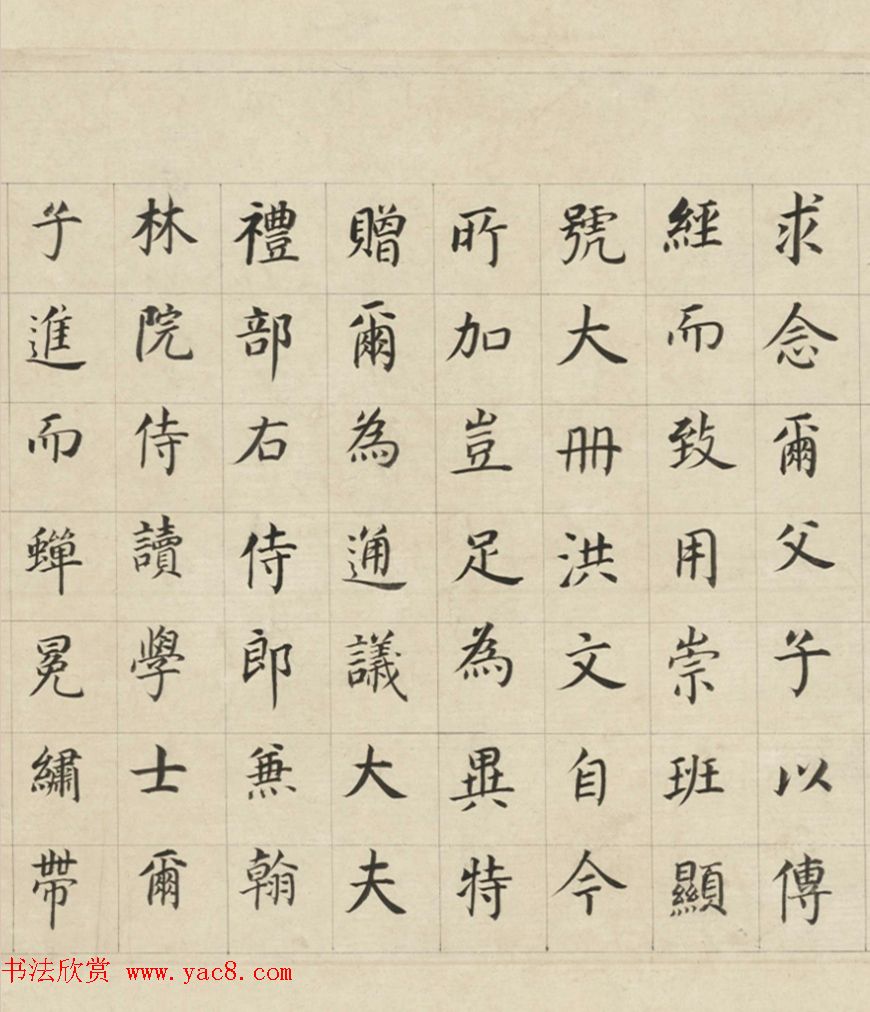 求念爾父子以傳
經而致用崇班顯
號大冊洪文自今
所加豈足為異特
贈爾為通議大夫
禮部右侍郎兼翰
林院侍讀學士爾
子進而蟬冕繡帶
书法欣赏 www.yac8.com